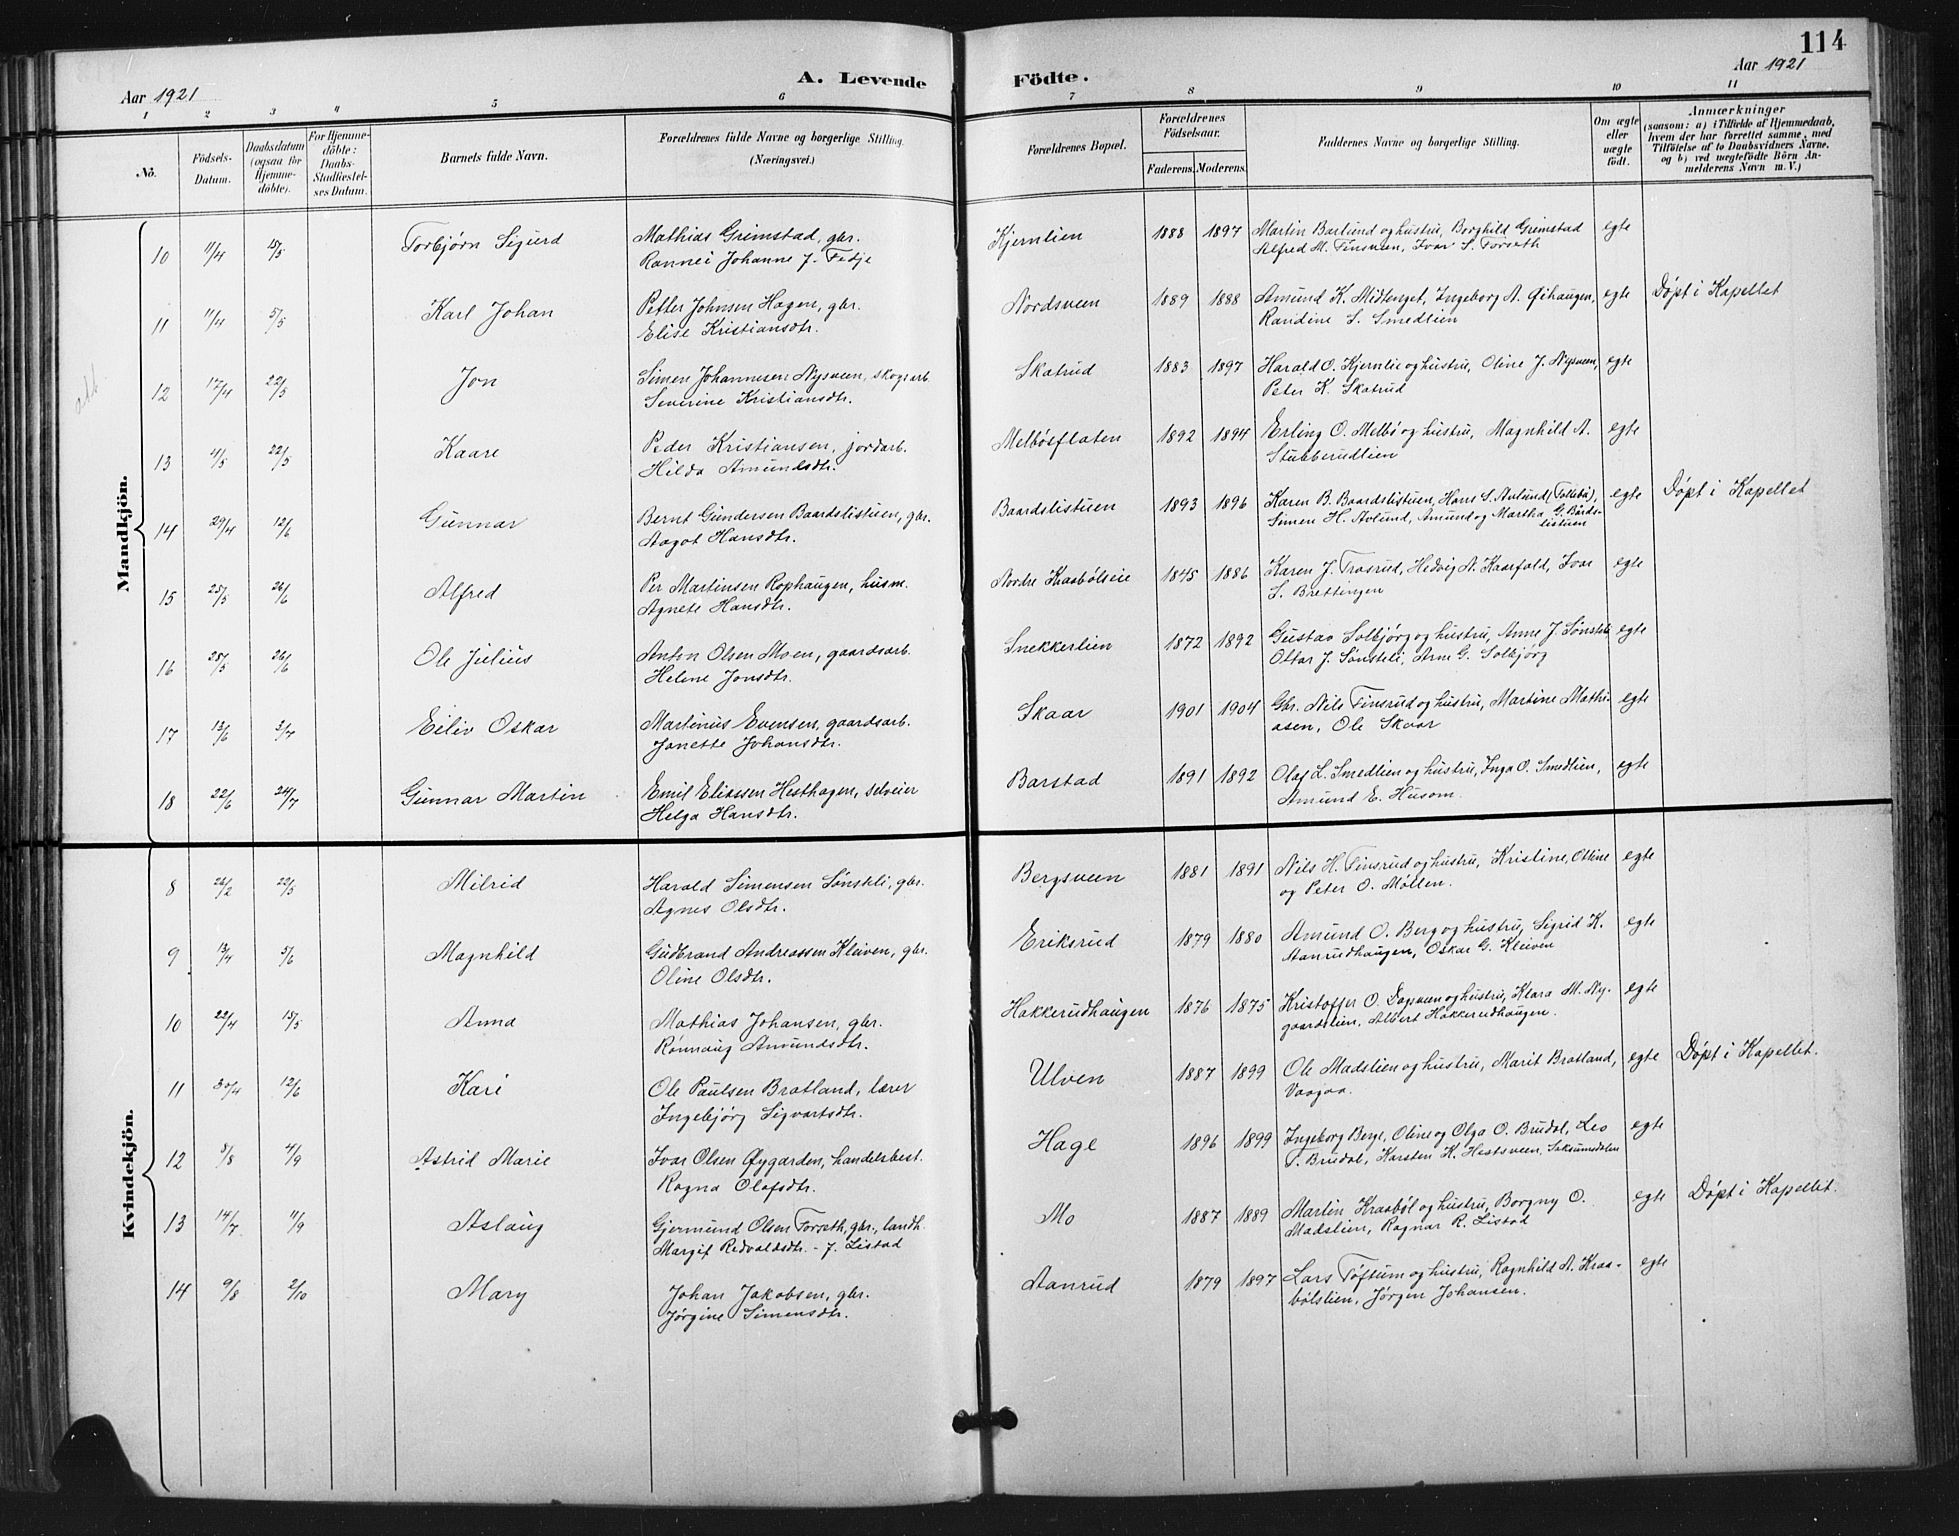 114
A. Levende Födte.
Aar 1921
Aar 1921
1 2 3 4 5 6 7 8 9 10 11
No.
Födsels-Datum.
Daabsdatum (ogsaa for Hjemme-döbte).
For Hjemme-döbte: Daabs-Stadfæstel-ses Datum.
Barnets fulde Navn.
Forældrenes fulde Navne og borgerlige Stilling. (Næringsvei.)
Forældrenes Bopæl.
Forældrenes Födselsaar.
Faderens. Moderens.
Faddernes Navne og borgerlige Stilling.
Om ægte eller uægte födt.
Anmærkninger
(saasom: a) i Tilfælde af Hjemmedaab, hvem der har forrettet samme, med Tilföielse af to Daabsvidners Navne, og b) ved uægtefödte Börn An-melderens Navn m. V.)
Mandkjön.
10 11/4 15/5 Torbjørn Sigurd Mathias Grimstad, gbr. Kjernlien 1888 1897 Martin Bærlund og hustru, Borghild Grimstad egte
Rannei Johanne J. Tedje Alfred M. Finsveen, Ivar S. Forseth
11 11/4 5/5 Karl Johan Petter Johnsen Hagen, gbr. Nordsveen 1889 1888 Amund K. Midtenget, Ingeborg A. Øihaugen, egte Døpt i Kapellet
Elise Kristiansdtr. Randine S. Smedlien
12 17/4 22/5 Jon Simen Johannesen Nysveen, skogsarb. Skatrud 1883 1897 Harald O. Kjernlie og hustru, Oline J. Nysveen, egte
Severine Kristiansdtr. Peter K. Skatrud
13 4/5 22/5 Kaare Peder Kristiansen, jordarb. Melbøsflaten 1892 1894 Erling O. Melbø og hustru, Magnhild A. egte
Hilda Amundsdtr. Stubberudlien
14 29/4 12/6 Gunnar Bernt Gundersen Baardslistuen, gbr. Baardslistuen 1893 1896 Karen B. Baardslistuen, Hans S. Avlund (Tollebø), egte Døpt i Kapellet
Aagot Hansdtr. Simen H. Avlund, Amund og Martha G. Bårds-listuen
15 25/5 26/6 Alfred Per Martinsen Rophaugen, husm. Nordre Kraabølseie 1845 1886 Karen J. Trosrud, Hedvig A. Kaarfald, Ivar egte
Agnete Hansdtr. S. Brettingen
16 28/5 26/6 Ole Julius Anton Olsen Moen, gaardsarb. Snekkerlien 1872 1892 Gustav Solbjørg og hustru, Anne J. Sønsteli egte
Helene Jonsdtr. Ottar J. Sønsteli, Arne G. Solbjørg
17 13/6 3/7 Eiliv Oskar Martinus Evensen, gaardsarb. Skaar 1901 1904 Gbr. Nils Finsrud og hustru, Martine Mathi- egte
Janette Johansdtr. asen, Ole Skaar
18 22/6 24/7 Gunnar Martin Emil Eliassen Hesthagen, selveier Barstad 1891 1892 Olaf L. Smedlien og hustru, Inga O. Smedlien, egte
Helga Hansdtr. Amund E. Husom
Kvindekjön.
8 26/2 22/5 Milrid Harald Simensen Sønsteli, gbr. Bergsveen 1881 1891 Nils H. Finsrud og hustru, Kristine, Otline egte
Agnes Olsdtr. og Peter O. Møllen.
9 13/4 5/6 Magnhild Gudbrand Andreassen Kleiven, gbr. Eriksrud 1879 1880 Amund O. Berg og hustru, Sigrid K. egte
Oline Olsdtr. Aanrudhaugen, Oskar G. Kleiven
10 22/4 15/5 Anna Mathias Johansen, gbr. Hakkerudhaugen 1876 1875 Kristoffer O. Dapveen og hustru, Klara M. Ny- egte
Rønnaug Amundsdtr. gaardslien, Albert Hakkerudhaugen.
11 30/4 12/6 Kari Ole Paulsen Bratland, lærer Ulven 1887 1899 Ole Madslien og hustru, Marit Bratland, egte Døpt i Kapellet.
Ingebjørg Sigvartsdtr. Vaagaa.
12 3/8 4/9 Astrid Marie Ivar Olsen Øygarden, handelsbest. Hage 1896 1899 Ingeborg Berge, Oline og Olga O. Brudal, Leo egte
Ragna Olafsdtr. T. Brudal, Karsten K. Hestsveen, Saksumsdalen
13 14/7 11/9 Aslaug Gjermund Olsen Forseth, gbr., landh. Mo 1887 1889 Martin Kraabøl og hustru, Borgny O. egte Døpt i Kapellet.
Margit Redvaldsdtr. - f. Listad Madslien, Ragnar R. Listad
14 9/8 2/10 Mary Johan Jakobsen, gbr. Aanrud 1879 1897 Lars Tøftum og hustru, Ragnhild A. Kraa- egte
Jørgine Simensdtr. bølslien, Jørgen Johansen.